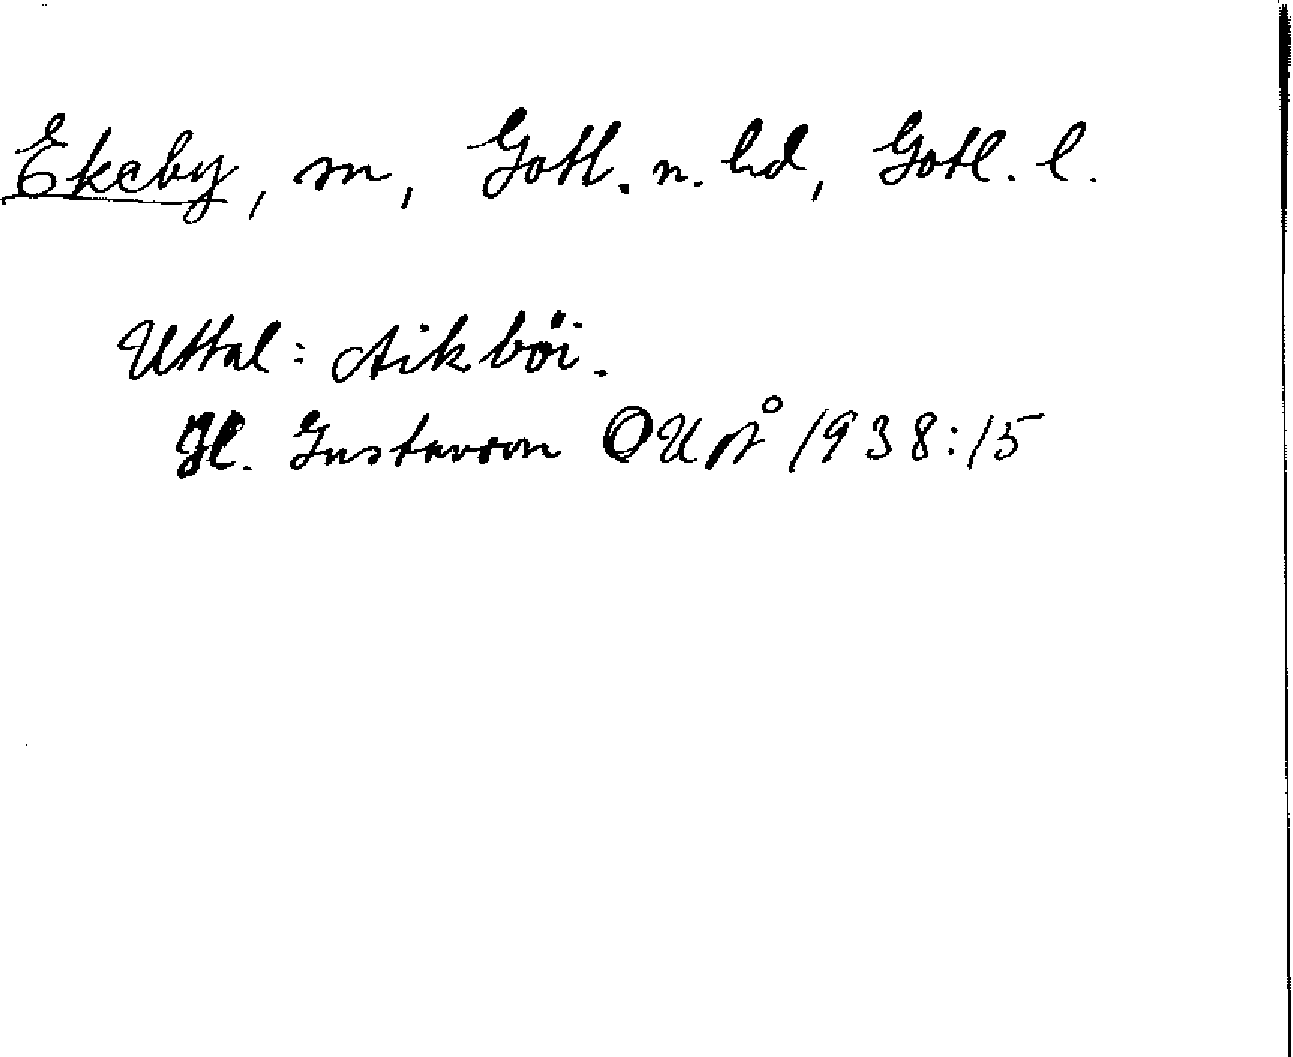 Ekeby, sn, Gotl. n. hd, Gotl. l.
Uttal: Aikböi.
H. Gustavson OUpÅ 1938:15